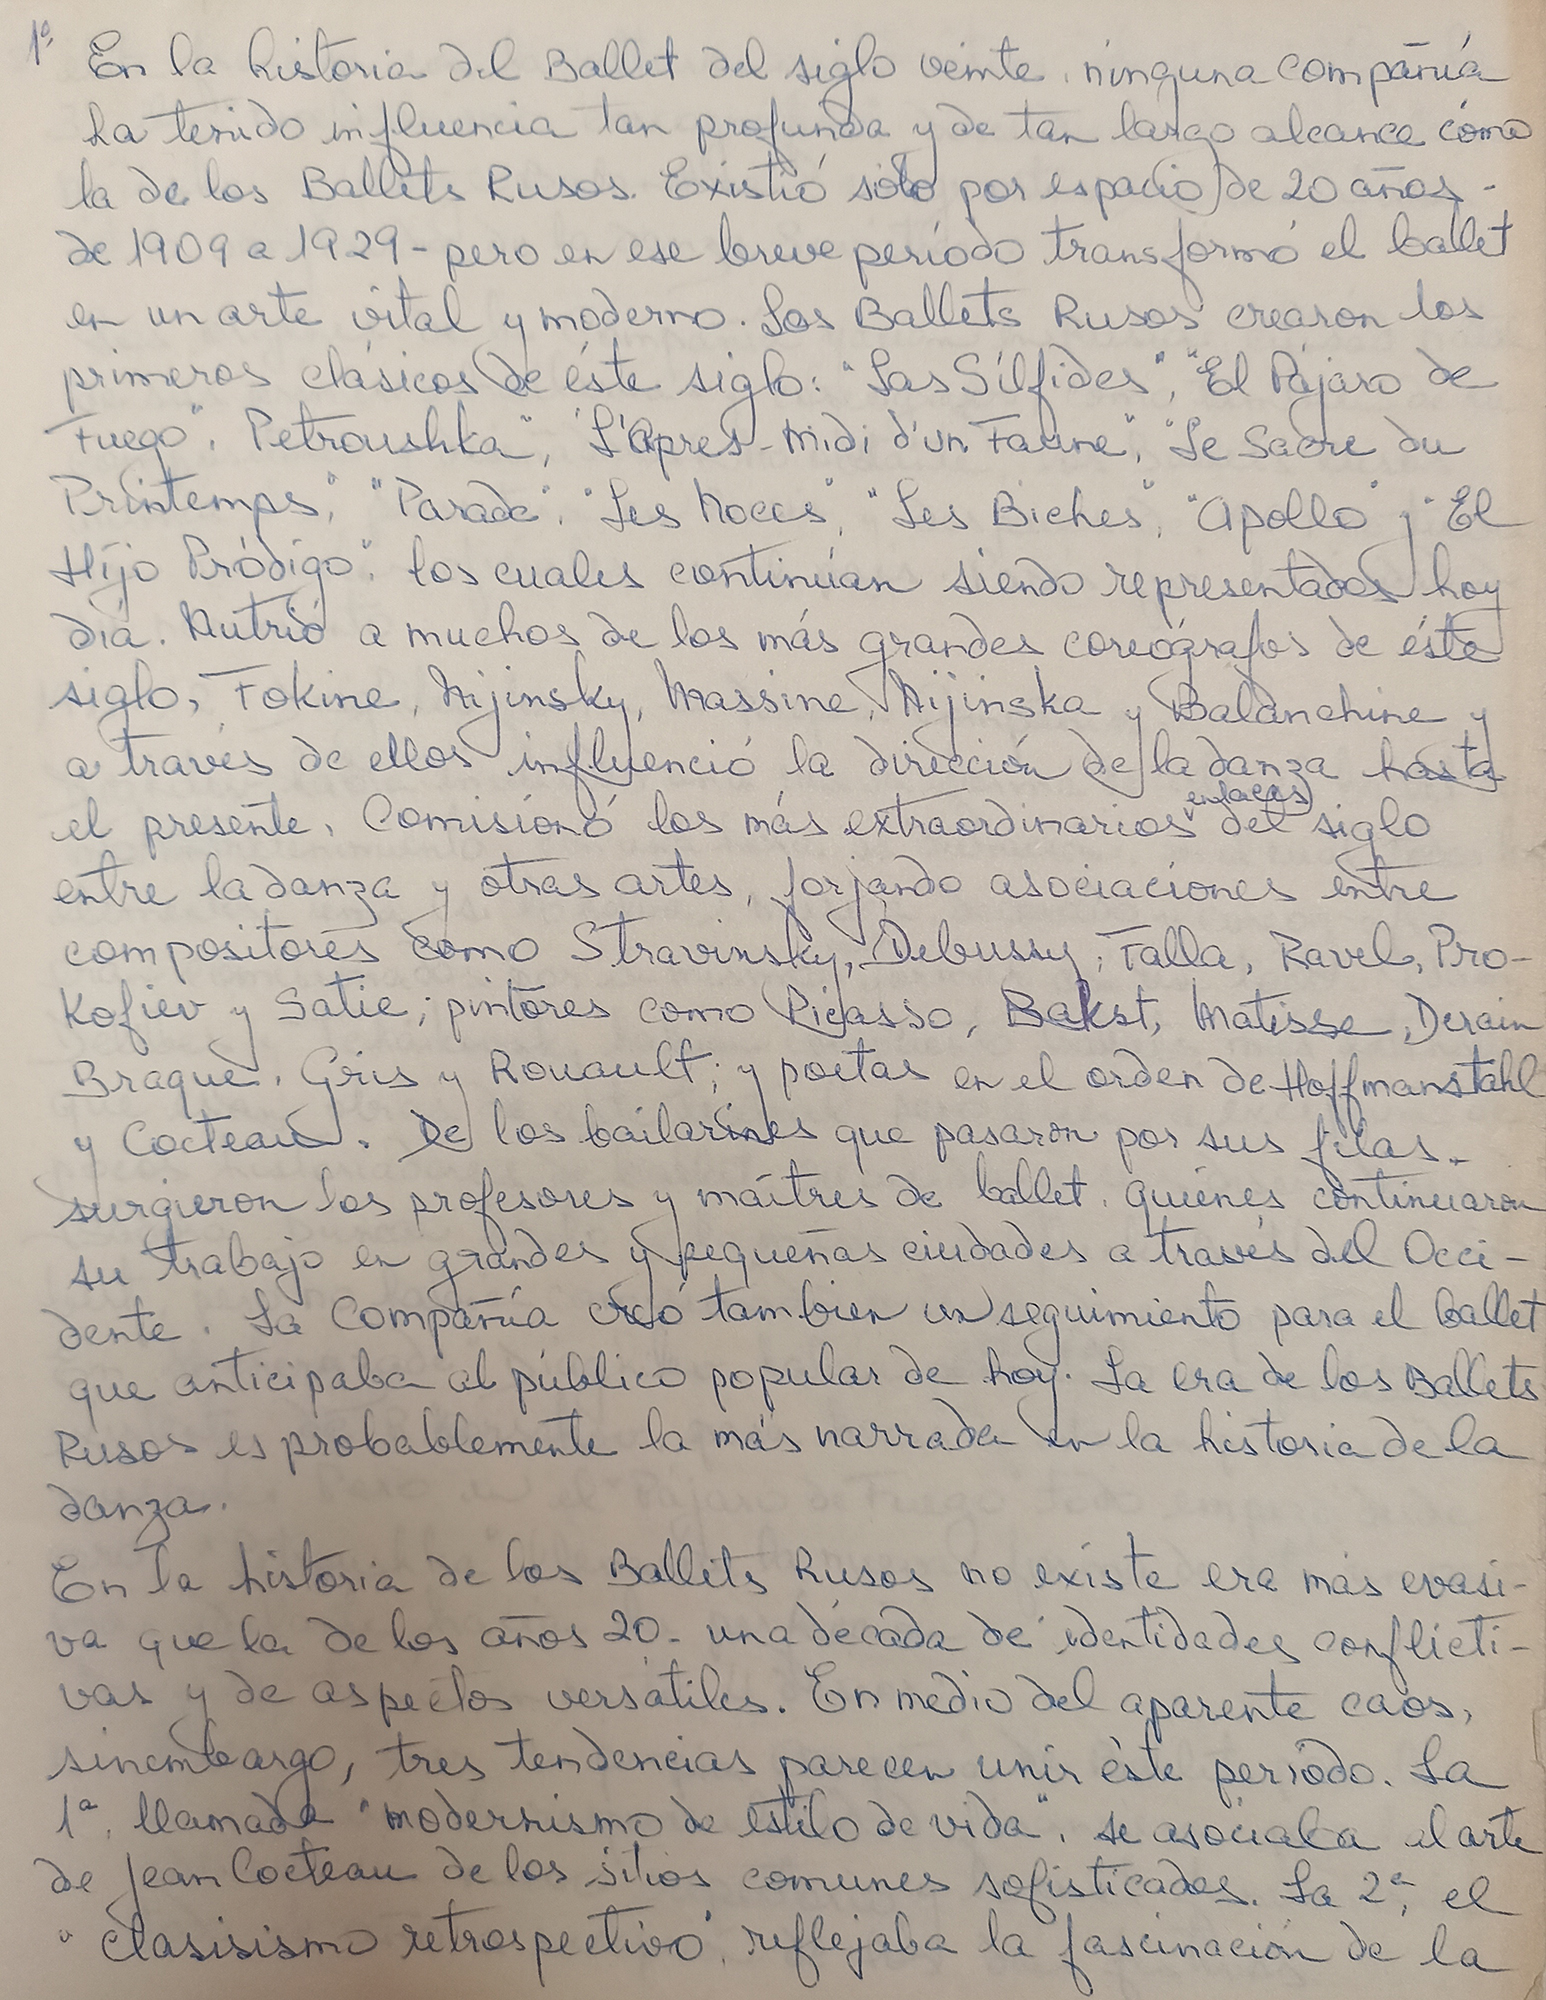 1º. En la historia del Ballet del siglo veinte, ninguna compañía
ha tenido influencia tan profunda y de tan largo alcance cómo
la de los Ballets Rusos. Existió sólo por espacio de 20 años -
de 1909 a 1929 - pero en ese breve período transformó el ballet
en un arte vital y moderno. Los Ballets Rusos crearon los
primeros clásicos de éste siglo: "Las Sílfides", "El Pájaro de
Fuego", Petroushka", "L'Apres-Midi d'un Faune", "Le Sacre du
Printemps", "Parade", "Les Noces", "Les Biches", "Apollo" y "El
Hijo Pródigo", los cuales continúan siendo representados hoy
día. Nutrió a muchos de los más grandes coreógrafos de éste
siglo, Fokine, Nijinsky, Massine, Nijinska y Balanchine y
a través de ellos influenció la dirección de la danza hasta
el presente. Comisionó los más extraordinarios enlaces del siglo
entre la danza y otras artes, forjando asociaciones entre
compositores como Stravinsky, Debussy, Falla, Ravel, Pro-
Kofiev y Satie; pintores como Picasso, Bakst, Matisse, Derain
Braque, Gris y Rouault; y poetas en el orden de Hoffmanstahl
y Cocteau. De los bailarines que pasaron por sus filas,
surgieron los profesores y maitres de ballet, quienes continuaron
su trabajo en grandes y pequeñas ciudades a través del Occi-
dente. La Compañía creó tambien un seguimiento para el ballet
que anticipaba al público popular de hoy. La era de los Ballets
Rusos es probablemente la más narrada en la historia de la
danza.
En la historia de los Ballets Rusos no existe era más evasi-
va que la de los años 20 - una década de identidades conflicti-
vas y de aspectos versátiles. En medio del aparente caos,
sinembargo, tres tendencias parecen unir éste período. La
1ª, llamada "modernismo de estilo de vida", se asociaba el arte
de Jean Cocteau de los sitios comunes sofisticados. La 2ª, el
"clasisismo retrospectivo", reflejaba la fascinación de la